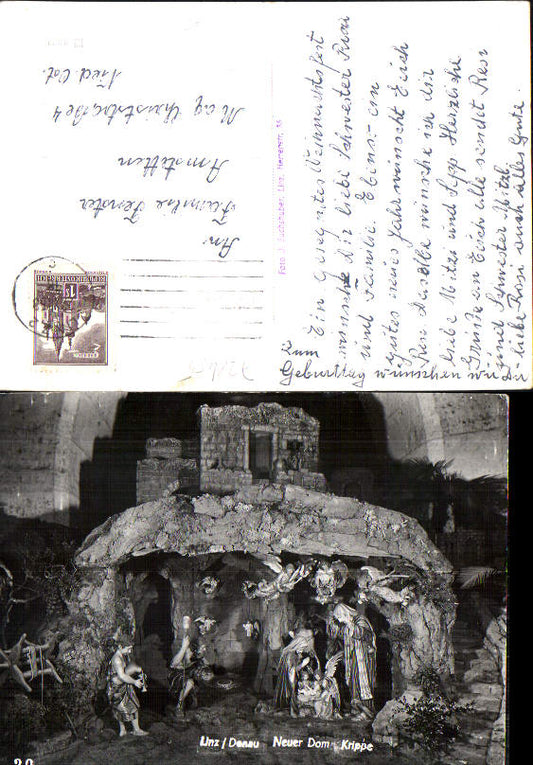 Ein Gesegnetes Weihnachtsfest
wünsche Dir liebe Schwester Rosi
und Familie. Ebenso ein
gutes neues Jahr wünscht Euch
Resi Dasselbe wünsche ich dir
liebe Mitzi und Sepp Herzliche
Grüße an Euch alle sendet Resi
und Schwester Mitzi
liebe Rosi auch alles Gute.
Zum
Geburtstag wünschen wir Dir
An
Familie Fenster
Amstetten
Nied. Öst.
REPUBLIK ÖSTERREICH
Linz / Donau Neuer Dom - Krippe